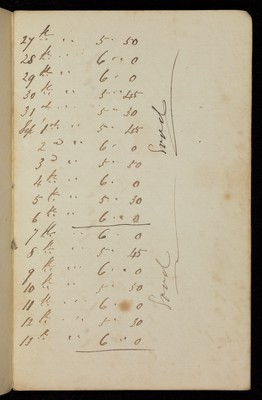 27th " " 5 " 50
28th " " 6 " 0
29th " " 6 " 0
30th " " 5 " 45
31st " " 5 " 30
Sep' 1st " " 5 " 45
2d " " 6 " 0
3d " " 5 " 50
4th " " 6 " 0
5th " " 5 " 30
6th " " 6 " 0
7th " " 6 " 0
8th " " 5 " 45
9th " " 6 " 0
10th " " 5 " 50
11th " " 6 " 0
12th " " 5 " 30
13th " " 6 " 0